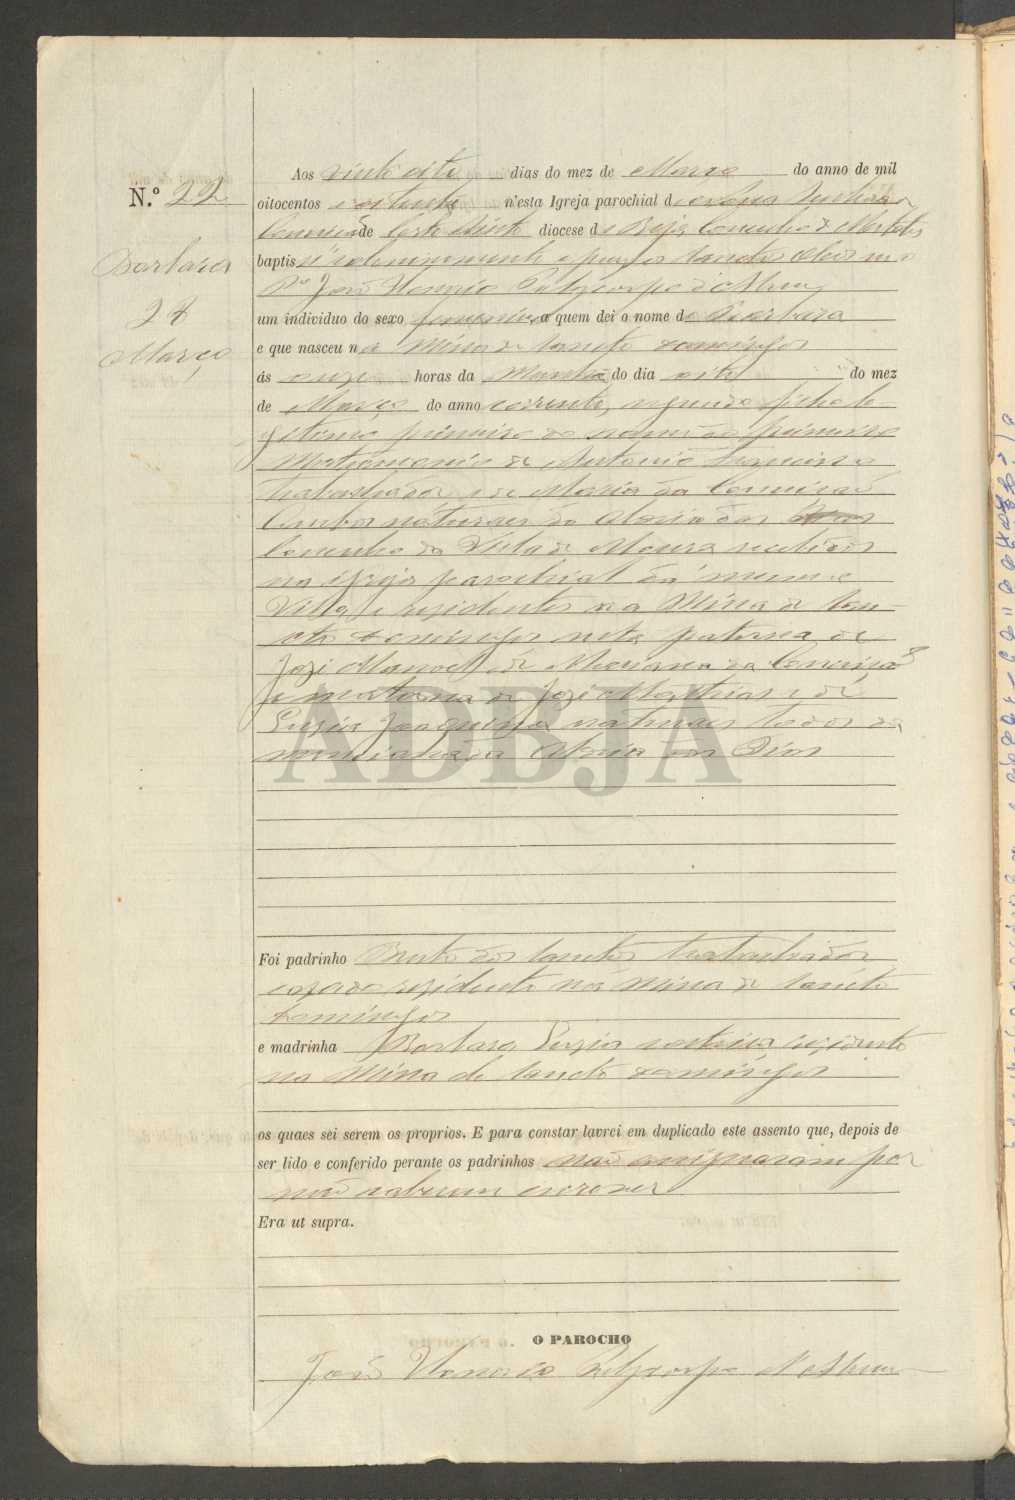 Nº 22
Barbara
28
Março
Aos vinte oito dias do mez de Março do anno de mil
oitocentos e oitenta n'esta Igreja parochial d
Conceição de Corte do Pinto diocese de Beja Concelho de Mertola
baptisei solemnemente e puz os Sanctos Oleos
Pe João Policarpo d'Abreu
um individuo do sexo femenino a quem dei o nome de Barbara
e que nasceu na Mina de Sancto Domingos
ás onze horas da Manhã do dia oito do mez
de Março do anno corrente, segundo filha le-
gitima primeira do nome do primeiro
Matrimonio de Antonio Francisco
trabalhador e de Maria da Conceição
ambos naturaes da Aldeia dos
Concelho da Villa de Moura recebidos
na Igreja parochial da mesma
Villa e residentes na Mina de San-
cto Domingos neta paterna de
José Manoel e de Marianna da Conceição
e materna de José Mathias e de
Luzia Joaquina naturaes todos da
mencionada Aldeia dos
Foi padrinho Bento dos Sanctos trabalhador
cazado rezidente na Mina de Sancto
Domingos
e madrinha Barbara Luzia solteira rezidente
na Mina de Sancto Domingos
os quaes sei serem os proprios. E para constar lavrei em duplicado este assento que, depois de
ser lido e conferido perante os padrinhos não assignaram por
não saberem escrever
Era ut supra.
O PAROCHO
João Policarpo d'Abreu
ADBJA